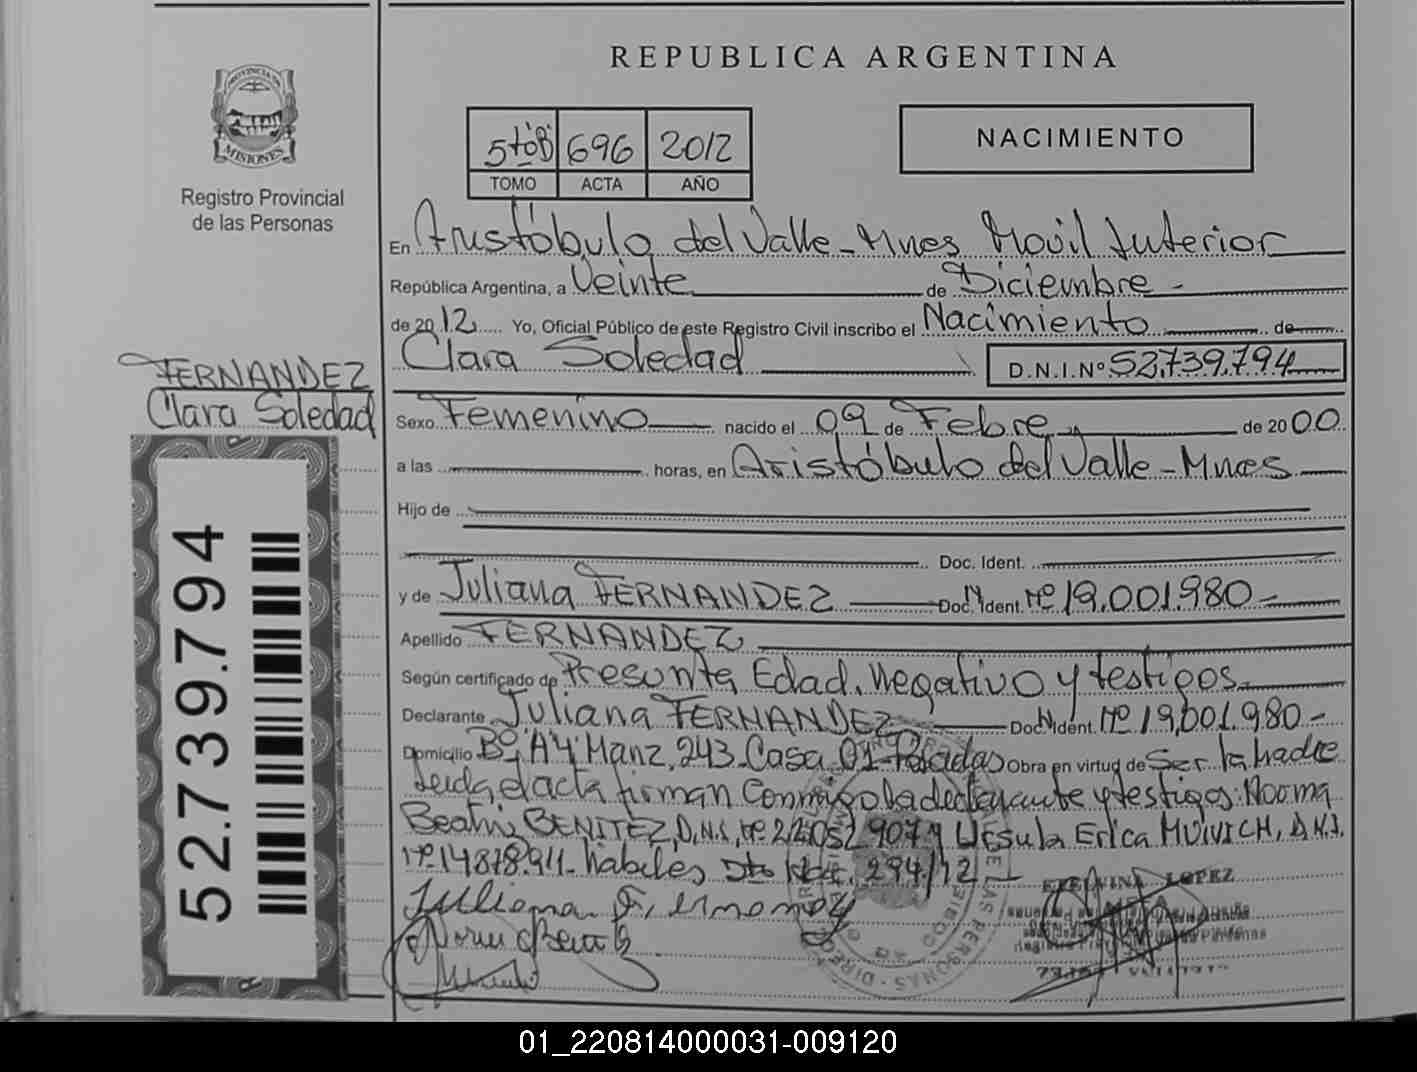 REPUBLICA ARGENTINA
PROVINCIA DE MISIONES
Registro Provincial
de las Personas
5to B 696 2012
TOMO ACTA AÑO
NACIMIENTO
En Aristóbulo del Valle - Mnes Movil Interior
República Argentina, a Veinte de Diciembre -
de 2012 Yo, Oficial Público de este Registro Civil inscribo el Nacimiento de
Clara Soledad D.N.I.Nº 52.739.794
FERNANDEZ
Clara Soledad
Sexo Femenino nacido el 09 de Febrero de 2000
a las horas, en Aristóbulo del Valle - Mnes
Hijo de
Doc. Ident.
y de Juliana FERNANDEZ Doc. Ident. Nº 19.001.980 -
Apellido FERNANDEZ
Según certificado de Presunta Edad, Negativo y testigos
Declarante Juliana FERNANDEZ Doc. Ident. Nº 19.001.980 -
Domicilio Bº "A4" Manz. 243 - Casa 01 - Posadas Obra en virtud de Ser la Madre
Leida el acta firman conmigo la declarante y testigos: Norma
Beatriz BENITEZ, D.N.I. Nº 22.052.907 y Ursula Erica D.N.I.
Nº 14.878.911 - habiles Dto 294/12
Juliana Fernandez
LOPEZ
52.739.794
01_220814000031-009120